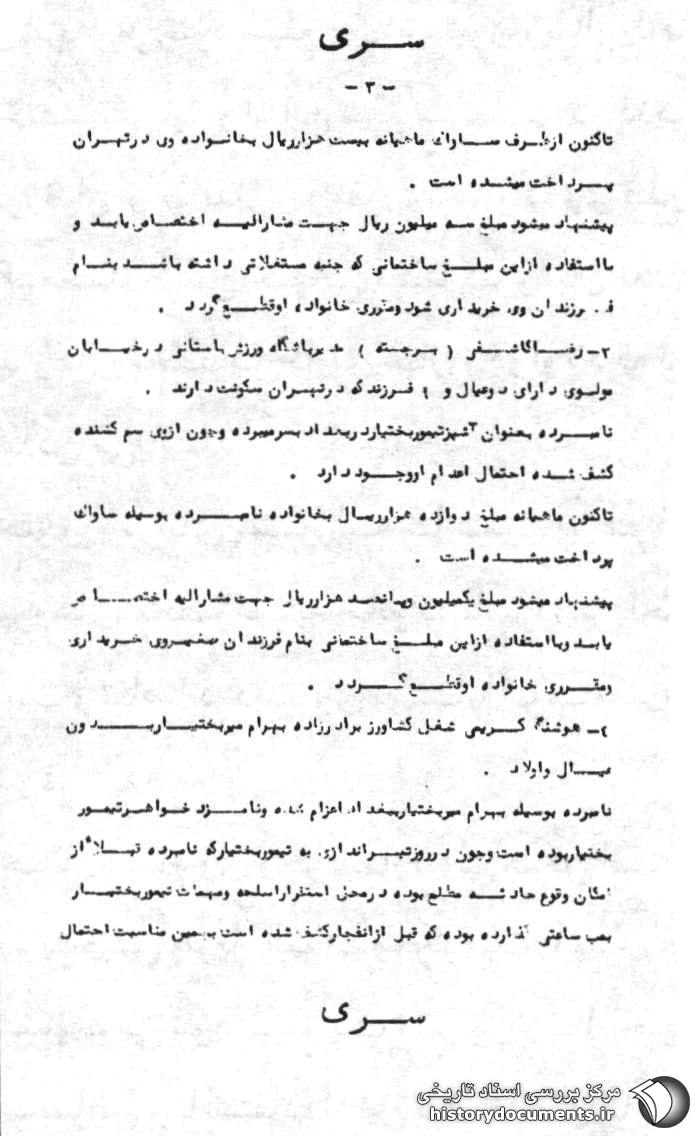 سری
- ۳ -
تاکنون از طرف ساواک ماهیانه بیست هزار ریال بخانواده وی در تهران
پرداخت میشده است .
پیشنهاد میشود مبلغ سه میلیون ریال جهت مشارالیه اختصاص یابد و
با استفاده از این مبلغ ساختمانی که جنبه مستغلاتی داشته باشد بنام
فرزندان وی خریداری شود ومقرری خانواده او قطع گردد .
۳- رضا کاشفی ( برجسته ) مدیر باشگاه ورزش باستانی در خیابان
مولوی دارای دو عیال و ۶ فرزند که در تهران سکونت دارند .
نامبرده بعنوان آشپز تیموربختیار در بغداد بسر میبرده وچون از وی سم کشنده
کشف شده احتمال اعدام او وجود دارد .
تاکنون ماهیانه مبلغ دوازده هزار ریال بخانواده نامبرده بوسیله ساواک
پرداخت میشده است .
پیشنهاد میشود مبلغ یکمیلیون وپانصد هزار ریال جهت مشارالیه اختصاص
یابد وبا استفاده از این مبلغ ساختمانی بنام فرزندان صغیر وی خریداری
ومقرری خانواده او قطع گردد .
۴- هوشنگ کریمی شغل کشاورز برادرزاده بهرام میربختیار بدون
عیال و اولاد .
نامبرده بوسیله بهرام میربختیار ببغداد اعزام شده ونامزد خواهر تیمور
بختیار بوده است وچون در روز تیراندازی به تیموربختیار که نامبرده قبلاً از
امکان وقوع حادثه مطلع بوده در محل استقرار اسلحه ومهمات تیموربختیار
بمب ساعتی گذارده بوده که قبل از انفجار کشف شده است بهمین مناسبت احتمال
سری
مرکز بررسی اسناد تاریخی
historydocuments.ir